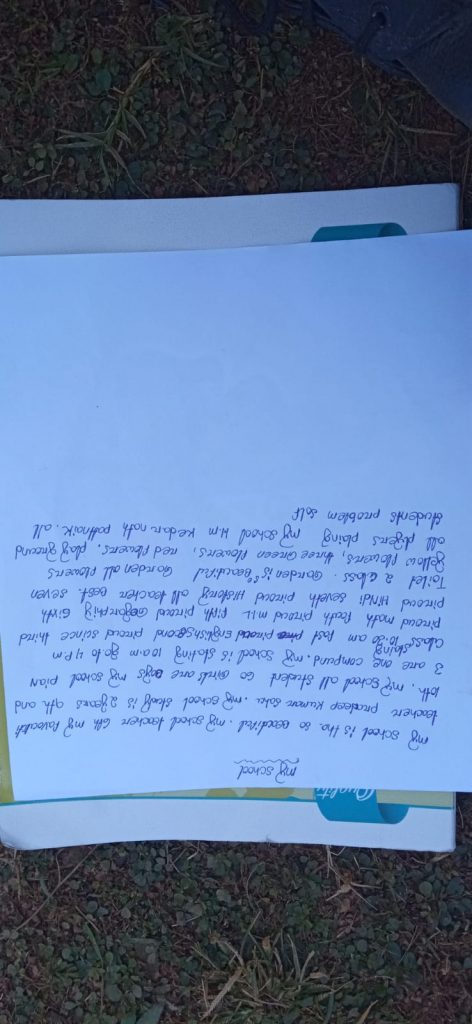 my school
my school is tha so beautiful. my school teacher 6th my favourit
teacher pradeep kumar sahu. my school is study is 2 years 9th and
10th. my school all student 60 Girls are boys my school pian
3 are one compund. my school is stating 10 a.m go to 4 P.m
class string 10.30 am fast English second piroud since third
piroud math fouth piroud M.I.L fifth piroud Geography Sixth
piroud Hindi seventh piroud History all teacher best. seven
Toilet 2 class. Garden is so beautiful Garden all flowers
yellow flowers, three Green flowers, red flowers. play ground
all plyers plaing my school H.m Kedar nath pattnaik. all
students problem solf
Quality